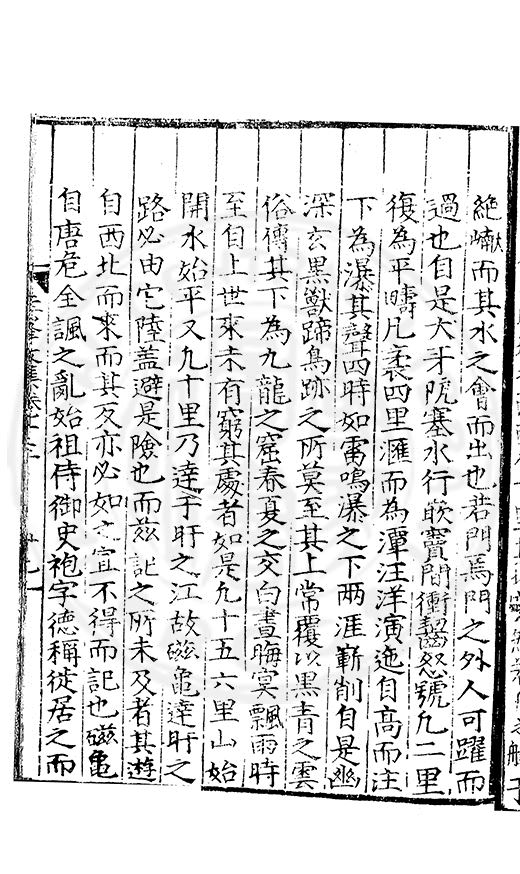 絶巘而其水之會而出也若門焉門之外人可躍而
過也自是犬牙阸塞水行嵌竇間衝齧怒號凢二里
復為平疇凢袤四里滙而為潭汪洋演迤自高而注
下為瀑其聲四時如雷鳴瀑之下兩涯嶄削自是幽
深玄黒獸蹄鳥跡之所莫至其上常覆以黒青之雲
俗傳其下為九龍之窟春夏之交白晝晦㝠飄雨時
至自上世來未有窮其處者如是凢十五六里山始
開水始平又凢十里乃達于盱之江故磁龜達盱之
路必由它陸蓋避是險也而兹記之所未及者其遊
自西北而來而其反亦必如之宜不得而記也磁龜
自唐危全諷之亂始祖侍御史袍字德稱徙居之而